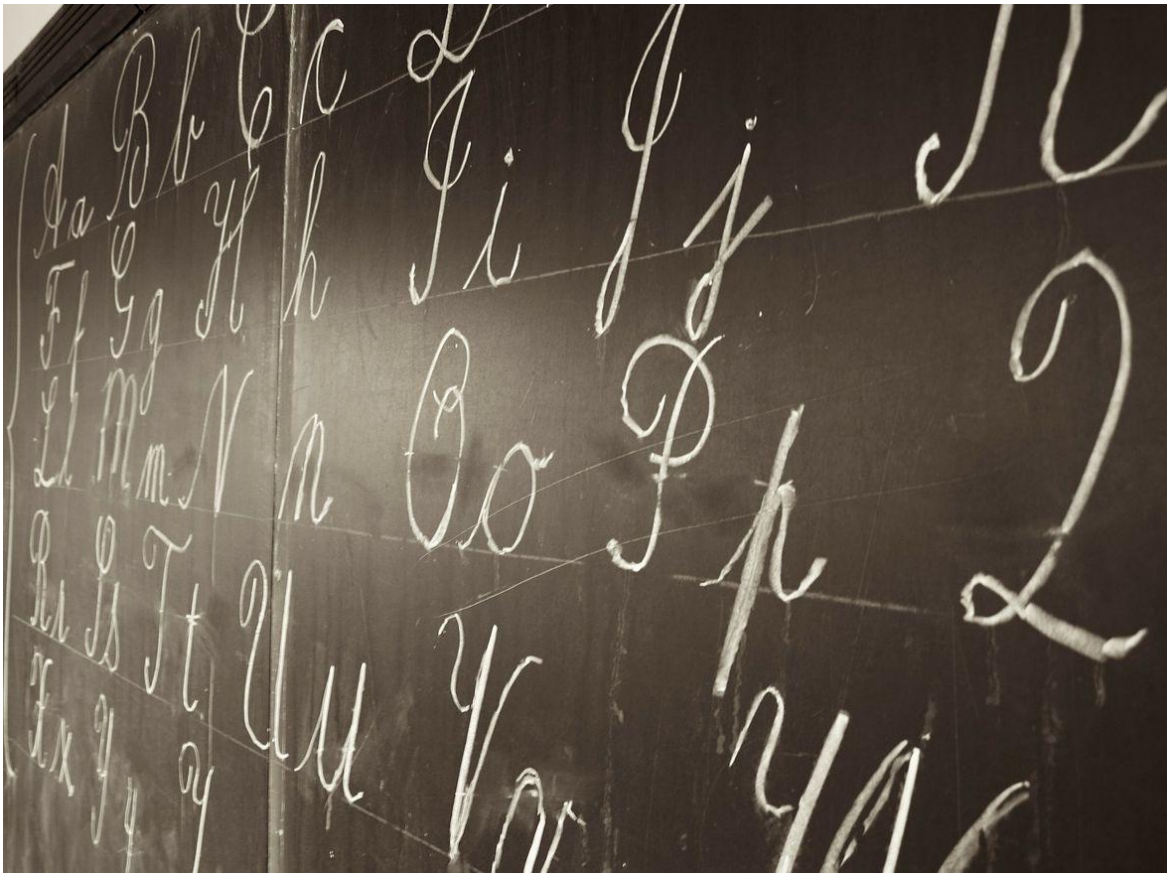 Aa Bb Cc
Ff Gg Hh Ii Jj K
Ll Mm Nn Oo Pp Q
Rr Ss Tt Uu Vv W
Xx Yy